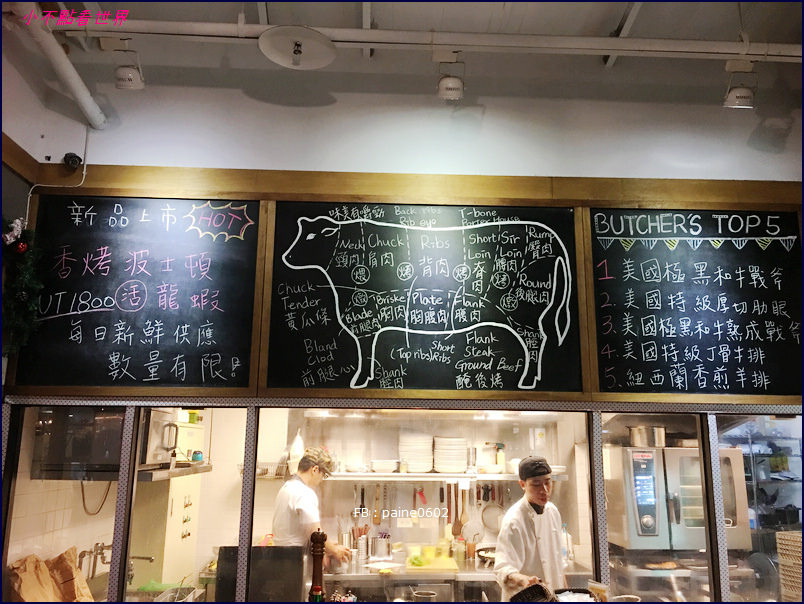 小不點看世界
新品上市 HOT
香烤波士頓
NT1800 活 龍蝦
每日新鮮供應
數量有限!
味美有嚼勁
Back ribs
Rib eye
T-bone
Porter House
Neck
頸肉
Chuck
肩肉
Ribs
背肉
Short
Loin
脊肉
Sir
Loin
腰肉
Rump
臀肉
Round
後腿肉
Chuck
Tender
黃瓜條
Blade
Briske
胸肉
Plate
胸腹肉
Flank
腹肉
Shank
脛肉
Bland
Clod
前腿心
Shank
脛肉
(Top ribs)
Short
Ribs
Flank
Steak
Ground Beef
醃後烤
BUTCHER'S TOP 5
1. 美國極黑和牛戰斧
2. 美國特級厚切肋眼
3. 美國極黑和牛熟成戰斧
4. 美國特級丁骨牛排
5. 紐西蘭香煎羊排
FB : paine0602